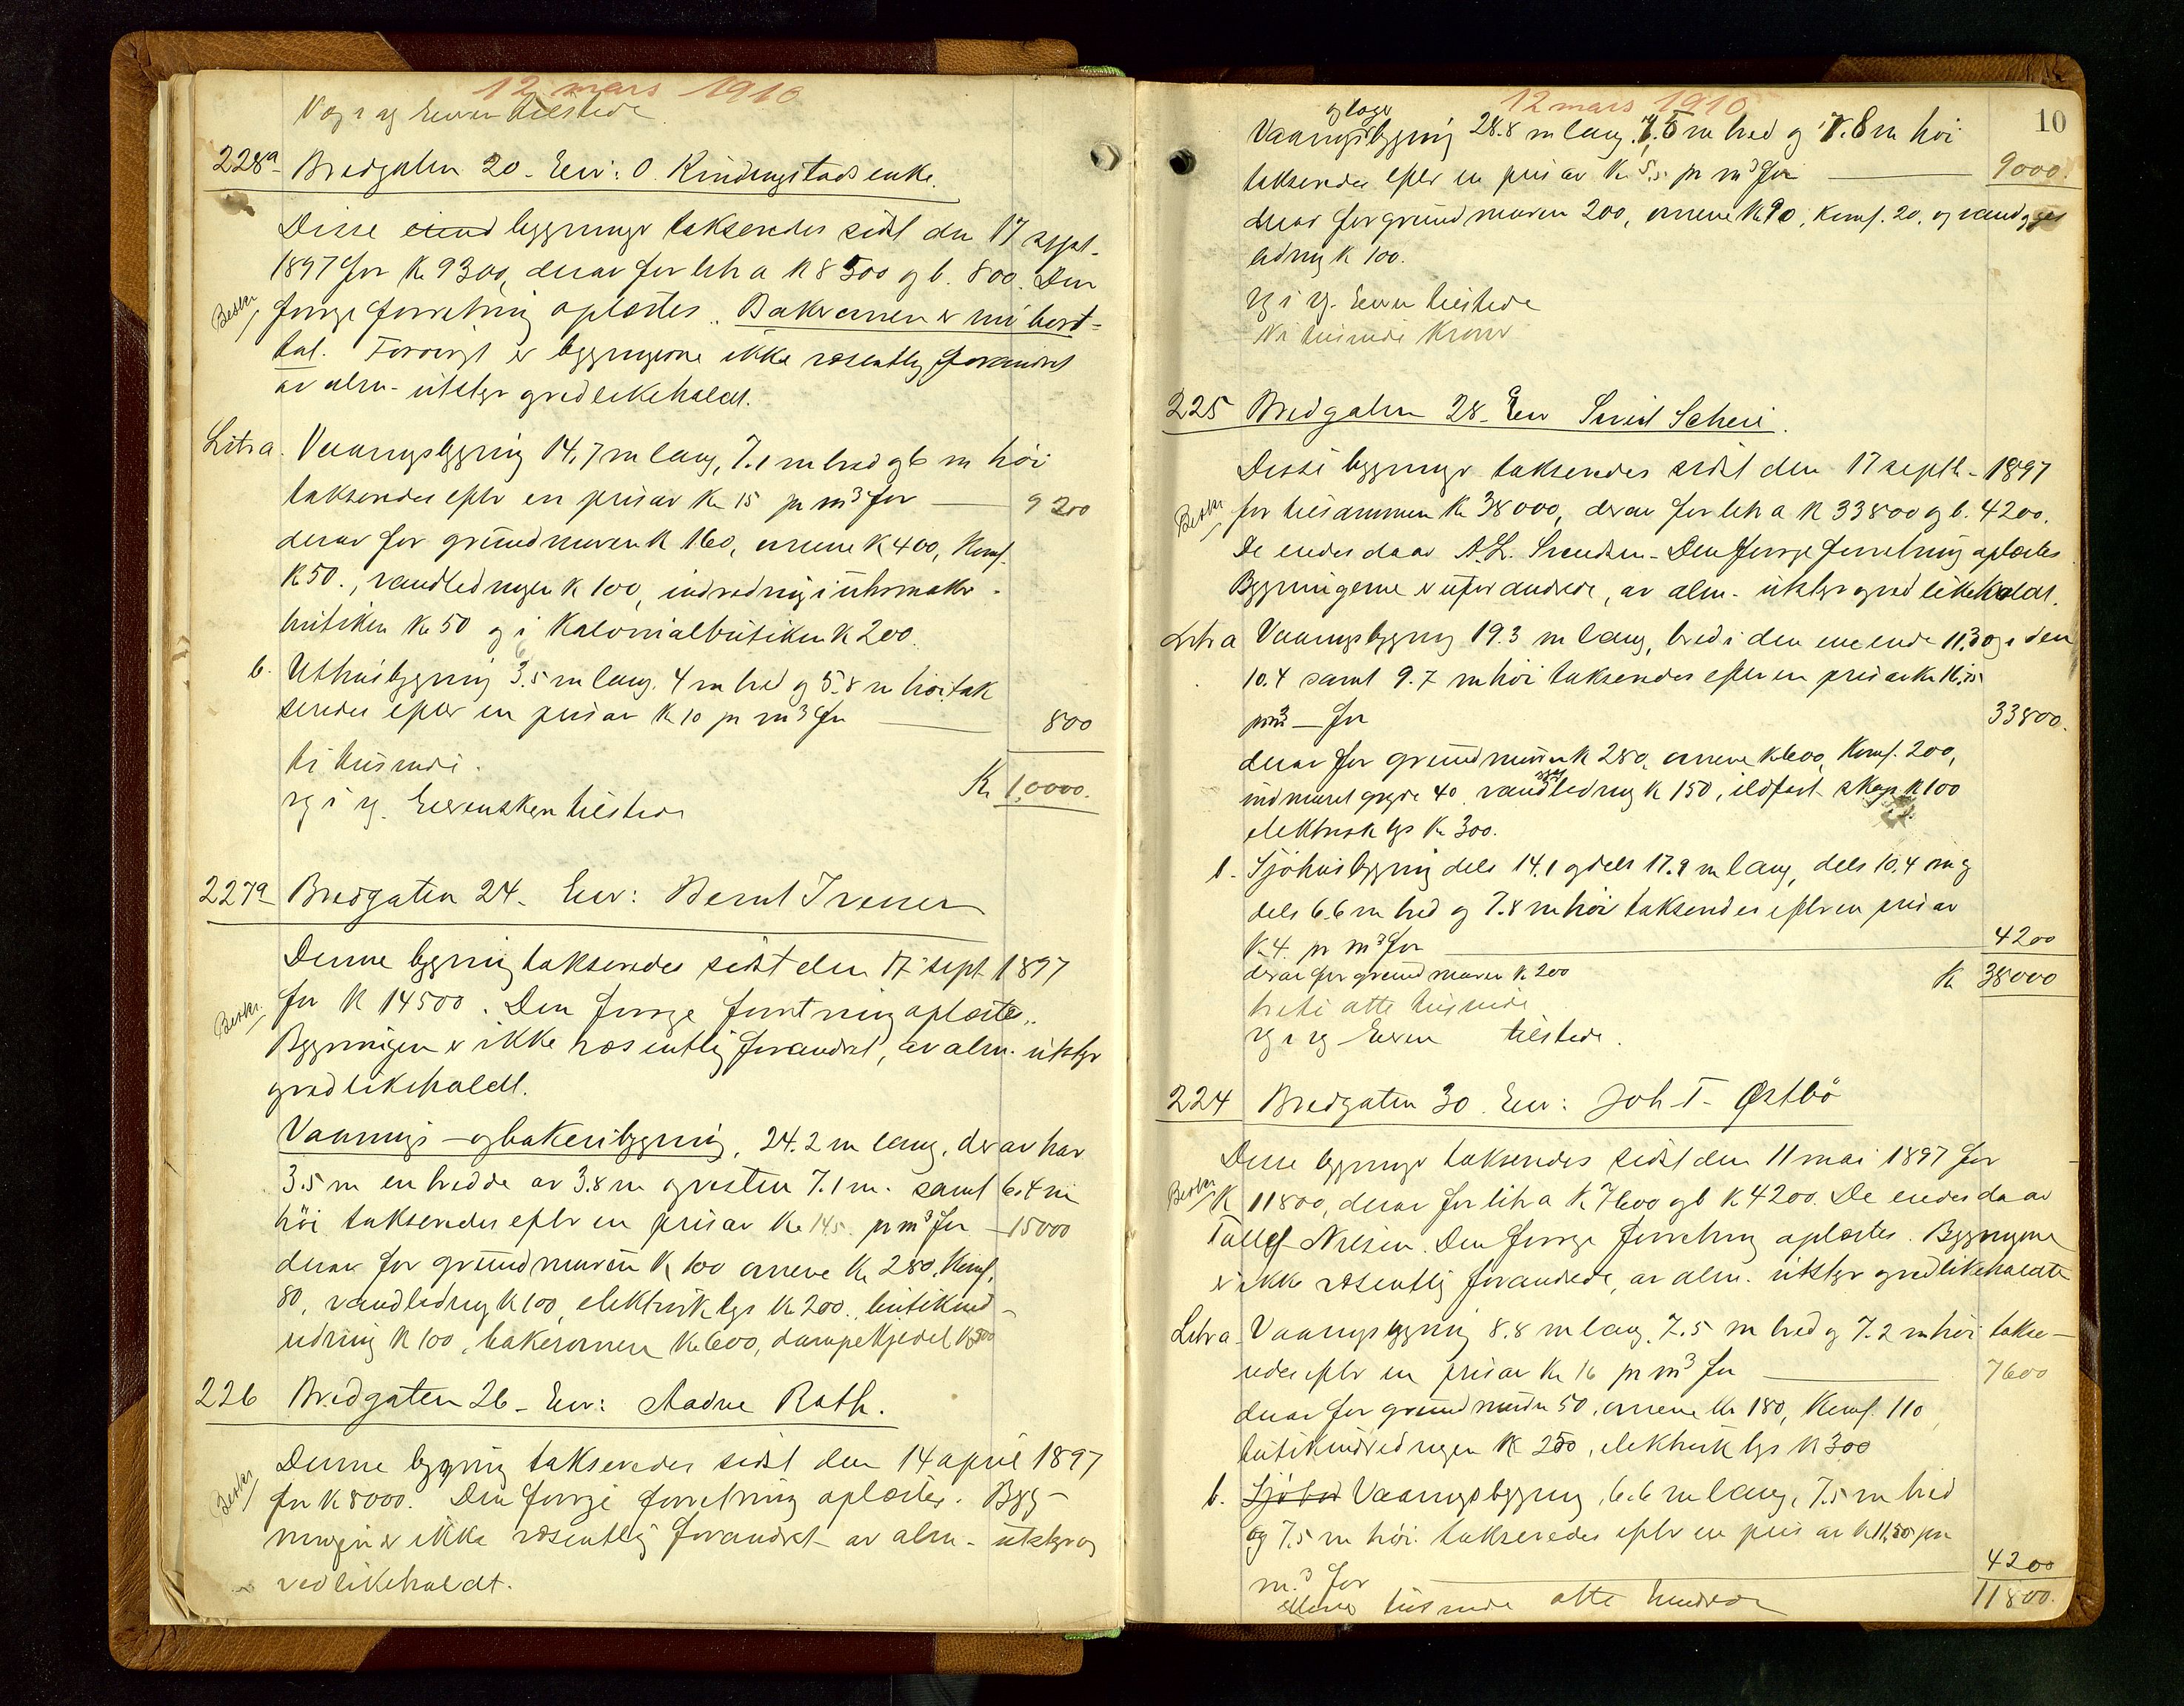 12 mars 1910
V og r og Eieren tilstede
228a Bredgaten 20 - Eier: O. Kindingstads enke.
Disse eiend bygninger takseredes sidst den 17 sept.
1897 for Kr 9300, derav for litr a K 8500 og b. 800. Den
Beskr forrige forretning oplæstes. Bakerovnen er nu bort-
tat. Forøvrigt er bygningerne ikke væsentlig forandret
av alm. utstyr og vedlikeholdt.
Litr a. Vaaningsbygning 14,7 m lang, 7.1 m bred og 6 m høi
takseredes efter en pris av Kr 15 pr m³ for — 9200
derav for grundmuren K 160, ovnene K 400, Komf.
K 50., vandledningen K 100, indredning i uhrmaker-
butiken Kr 50 og i Kolonialbutiken K 200.
b. Uthusbygning 3.5 m lang, 4 m bred og 5.8 m høi tak
seredes efter en pris av Kr 10 pr m³ for — 800
ti tusinde.
Kr 10000.
V og r og. Eierens tilstede
227a Bredgaten 24 - Eier: Bernt Iversen
Denne bygning takseredes sidst den 17 sept 1897
Beskr. for K 14500. Den forrige forretning oplæstes.
Bygningen er ikke væsentlig forandret, av alm. utstyr
og vedlikeholdt.
Vaanings- og bakeribygning, 24.2 m lang, derav har
3.5 m en bredde av 3.8 m og resten 7.1 m. samt 6.4 m
höi takseredes efter en pris av Kr 14.5 pr m³ for — 15000
derav for grundmuren K 100 ovnene Kr 280, Komf.
80, vandledning K 100, elektrisk lys Kr 200. butikind-
redning K 100, bakerovnen Kr 600, dampkjedel K 500
226 Bredgaten 26 - Eier: Aadne Rath.
Denne bygning takseredes sidst den 14 april 1897
Beskr for K 8000. Den forrige forretning oplæstes. Byg-
ningen er ikke væsentlig forandret av alm. utstyr og
vedlikeholdt.
12 mars 1910
10
og lager
Vaaningsbygning 28.8 m lang, 7.5 m bred og 7.8 m høi
takseredes efter en pris av Kr 5,5 pr m³ for — 9000.
derav for grundmuren 200, ovnene K 90, Komf. 20, og vand og gas
ledning K 100.
V og r og. Eieren tilstede
Ni tusinde Kroner
225 Bredgaten 28 - Eier Svend Scheie.
Disse bygninger takseredes sidst den 17 septb - 1897
Beskr for tilsammen Kr 38000, derav for litr a K 33800 og b. 4200.
De eiedes da av A.L. Svendsen - Den forrige forretning oplæstes
Bygningerne er uforandrede, av alm. utstyr og vedlikeholdt.
Litr a Vaaningsbygning 19.3 m lang, bred i den ene ende 11.30 og i den
10.4 samt 9.7 m høi takseredes efter en pris av Kr 16,25
pr m³ — for 33800.
derav for grundmuren K 280, ovnene K 600, Komf. 200,
indmuret gryte 40 vandledning K 150, ildfast skap K 100
elektrisk lys Kr 300.
b. Sjöhusbygning dels 14.1 og dels 17.9 m lang, dels 10.4 m og
dels 6.6 m bred og 7.8 m høi takseredes efter en pris av
K 4. pr m³ for — 4200
derav for grundmuren K 200 K 38000
tretti otte tusinde
V og r og Eieren tilstede.
224 Bredgaten 30. Eier: Joh T. Østbö
Disse bygninger takseredes sidst den 11 mai 1897 for
Beskr K 11800, derav for litr a K 7600 og b K 4200. De eiedes da av
Tollef Nilsen. Den forrige forretning oplæstes. Bygningerne
er ikke væsentlig forandrede, av alm. utstyr og vedlikeholdte
Litr a Vaaningsbygning 8.8 m lang, 7.5 m bred og 7.2 m høi takse-
redes efter en pris av Kr 16 pr m³ for — 7600
derav for grundmuren 50, ovnene Kr 180, Komf. 110
butikindredningen K 250, elektrisk lys K 300
b. Sjöbod Vaaningsbygning, 6.6 m lang, 7.5 m bred
og 7.5 m høi takseredes efter en pris av K 11,50 pr
m³ for — 4200
elleve tusinde otte hundrede 11800.